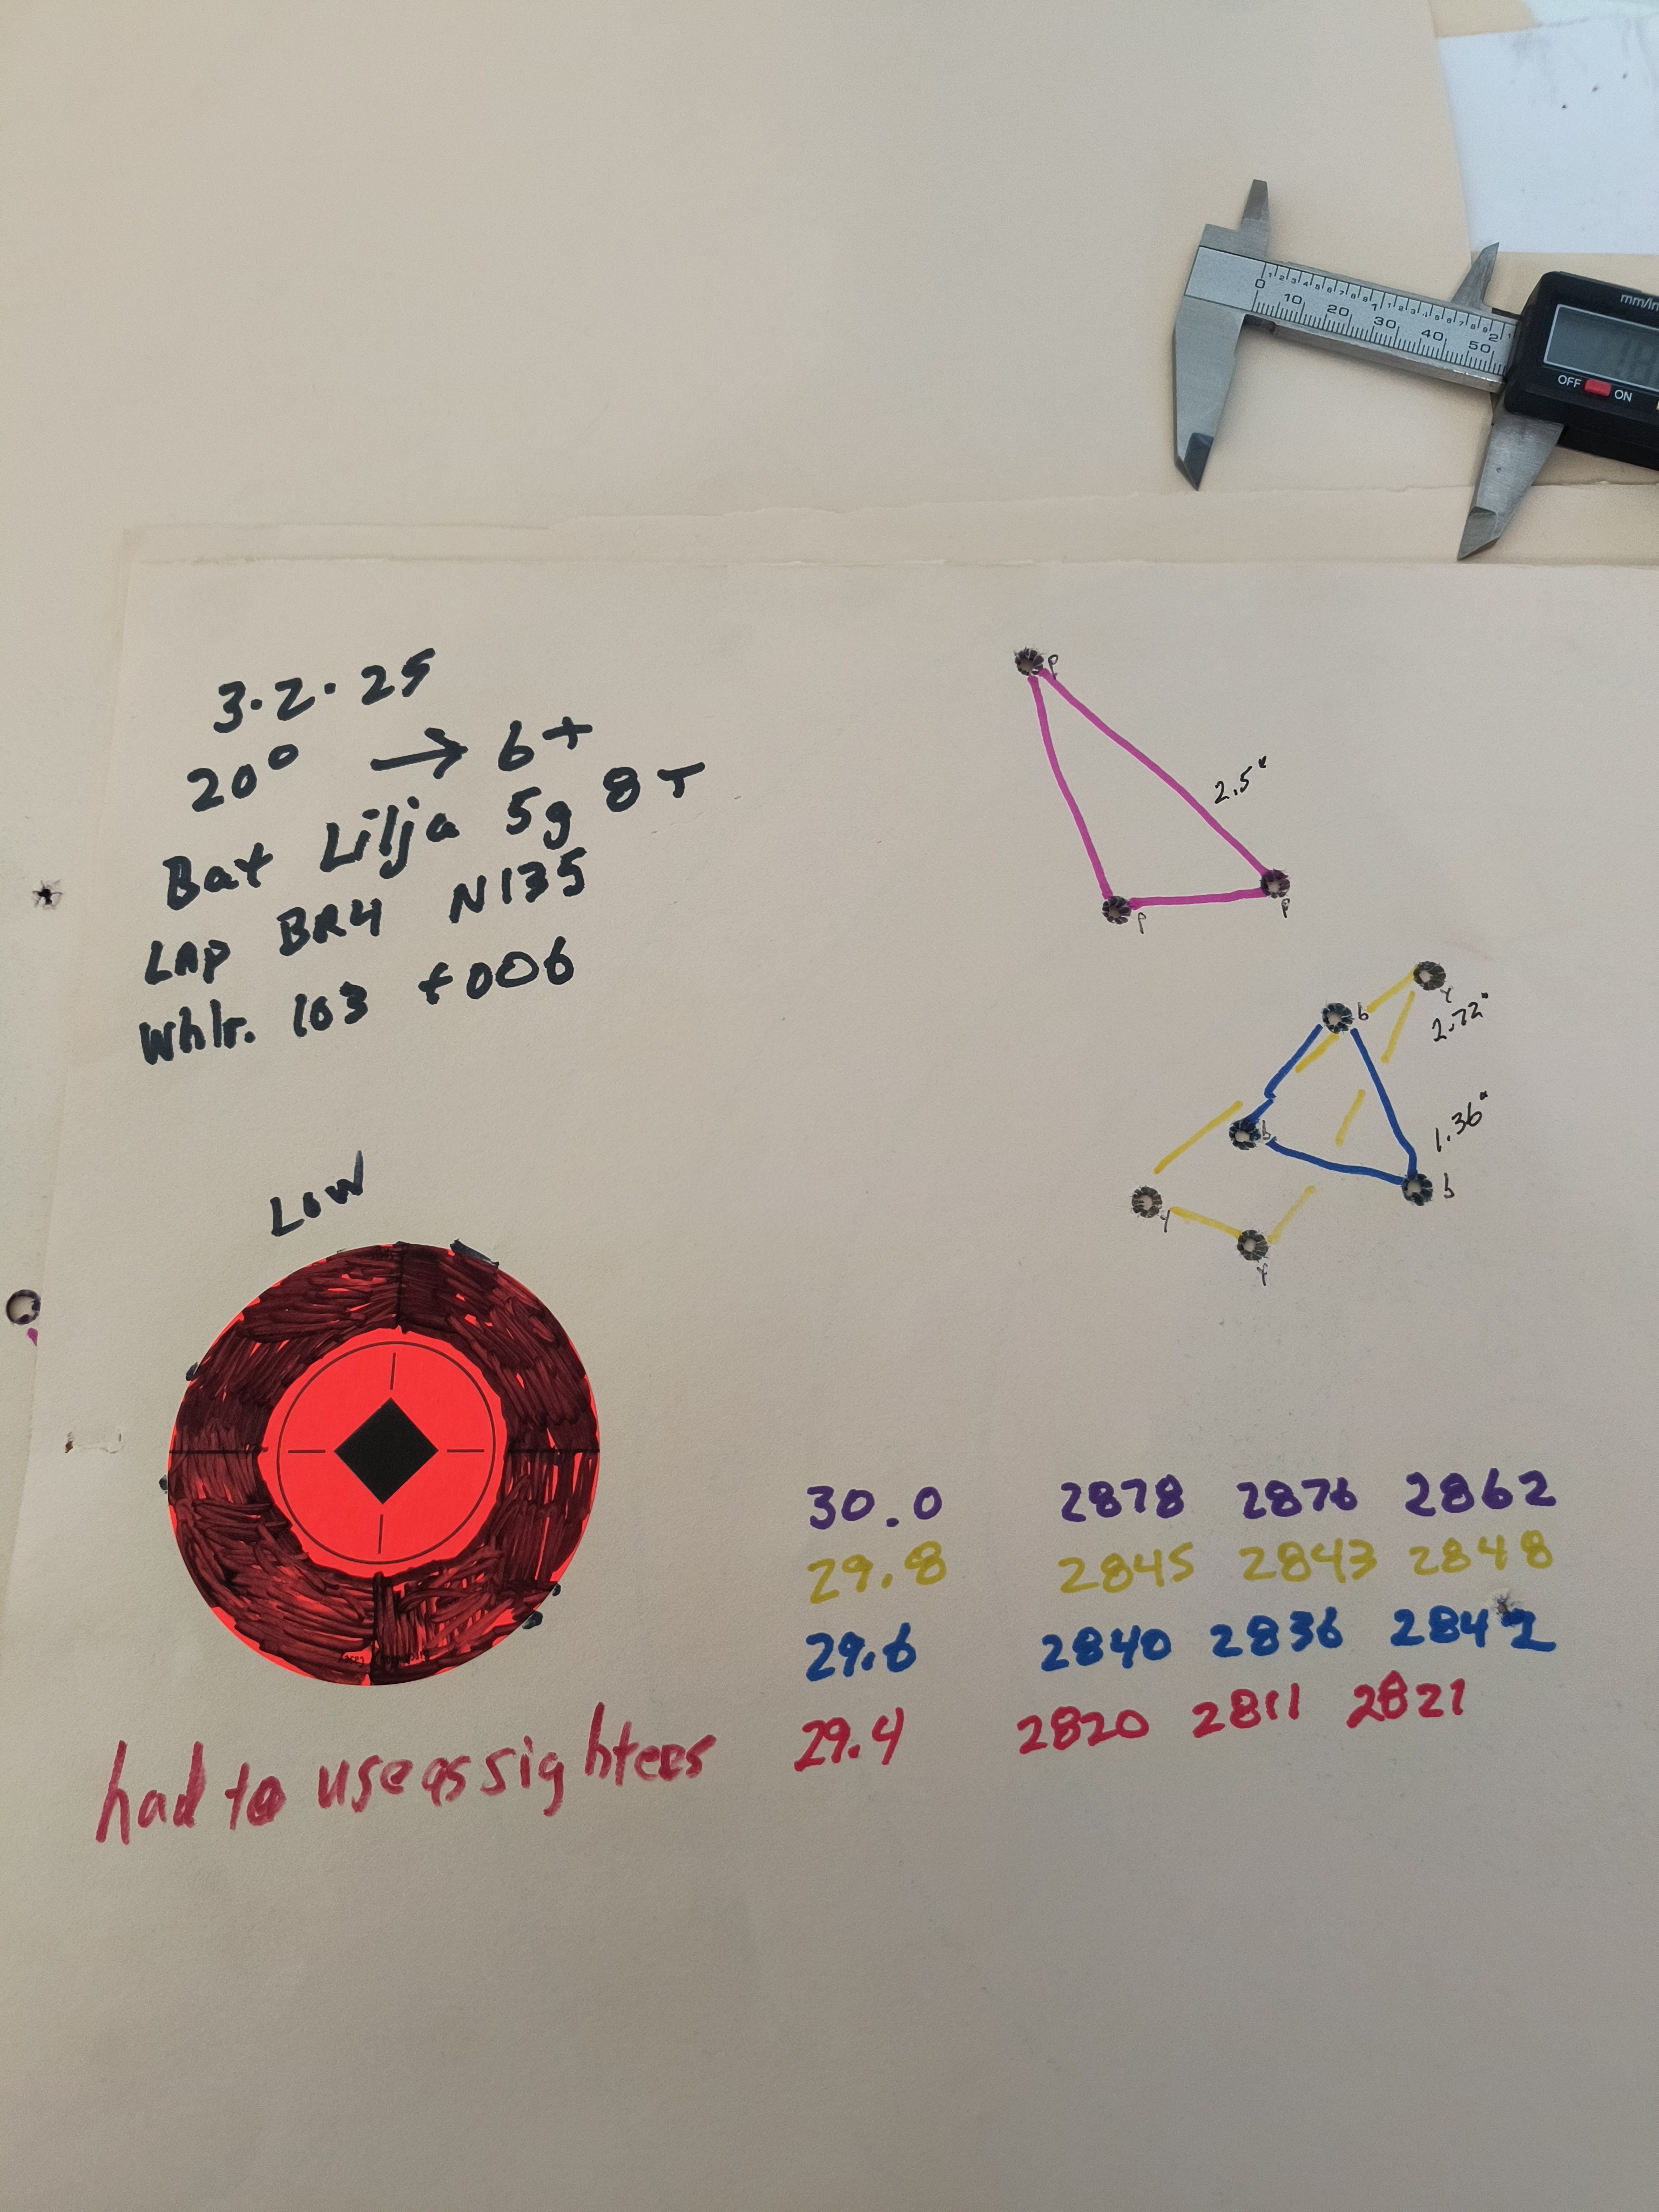 mm/in
0 10 20 30 40 50
OFF ON
3.2.25
20° → 6+
Bat Lilja 5g 8T
LAP BR4 N135
Whlr. 103 +006
LOW
P
2.5"
P
P
Y
b
2.72"
1.36"
b
b
Y
Y
30.0 2878 2876 2862
29.8 2845 2843 2848
29.6 2840 2836 2842
29.4 2820 2811 2821
had to use as sighters